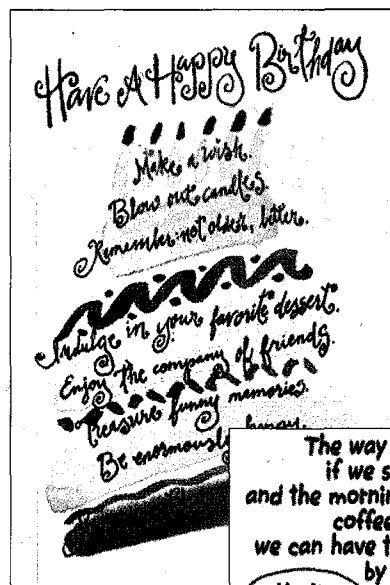 Have A Happy Birthday
Make a wish.
Blow out candles.
Remember: not older, better.
Indulge in your favorite dessert.
Enjoy the company of friends.
Treasure funny memories.
Be enormously
The way
if we s
and the mornin
coffee
we can have t
by